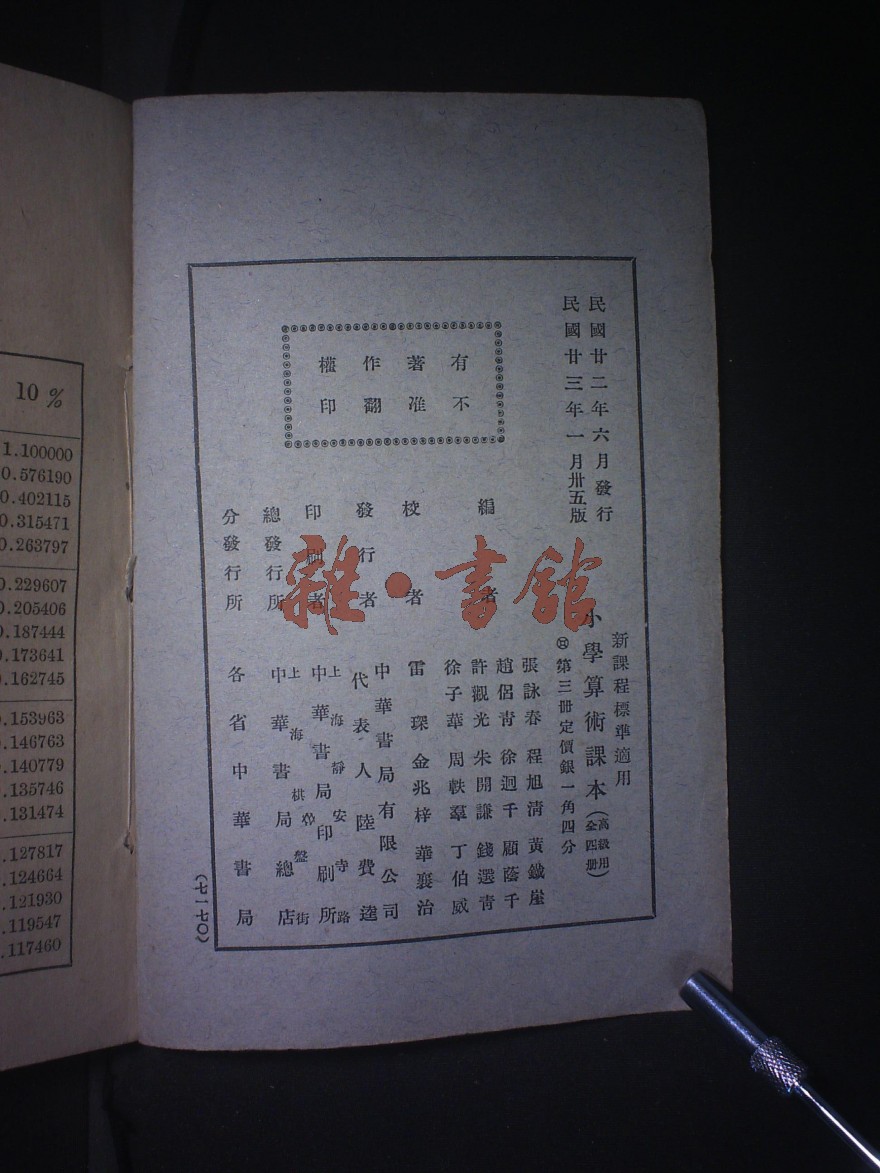 民國廿二年六月發行
民國廿三年一月卅五版
新課程標準適用
小學算術課本（高級用全四册）
第三册定價銀一角四分
有著作權
不准翻印
編者
張詠春 程旭清 黃鐵崖
趙侶青 徐迥千 顧蔭千
許觀光 朱開謙 錢選青
徐子華 周軼羣 丁伯威
校者
雷琛 金兆梓 華襄治
發行者
中華書局有限公司
代表人 陸費逵
印刷者
上海靜安寺路
中華書局印刷所
總發行所
上海棋盤街
中華書局總店
分發行所
各省中華書局
（七一七〇）
雜·書館
10 %
1.100000
0.576190
0.402115
0.315471
0.263797
0.229607
0.205406
0.187444
0.173641
0.162745
0.153963
.146763
.140779
.135746
.131474
.127817
.124664
.121930
.119547
.117460